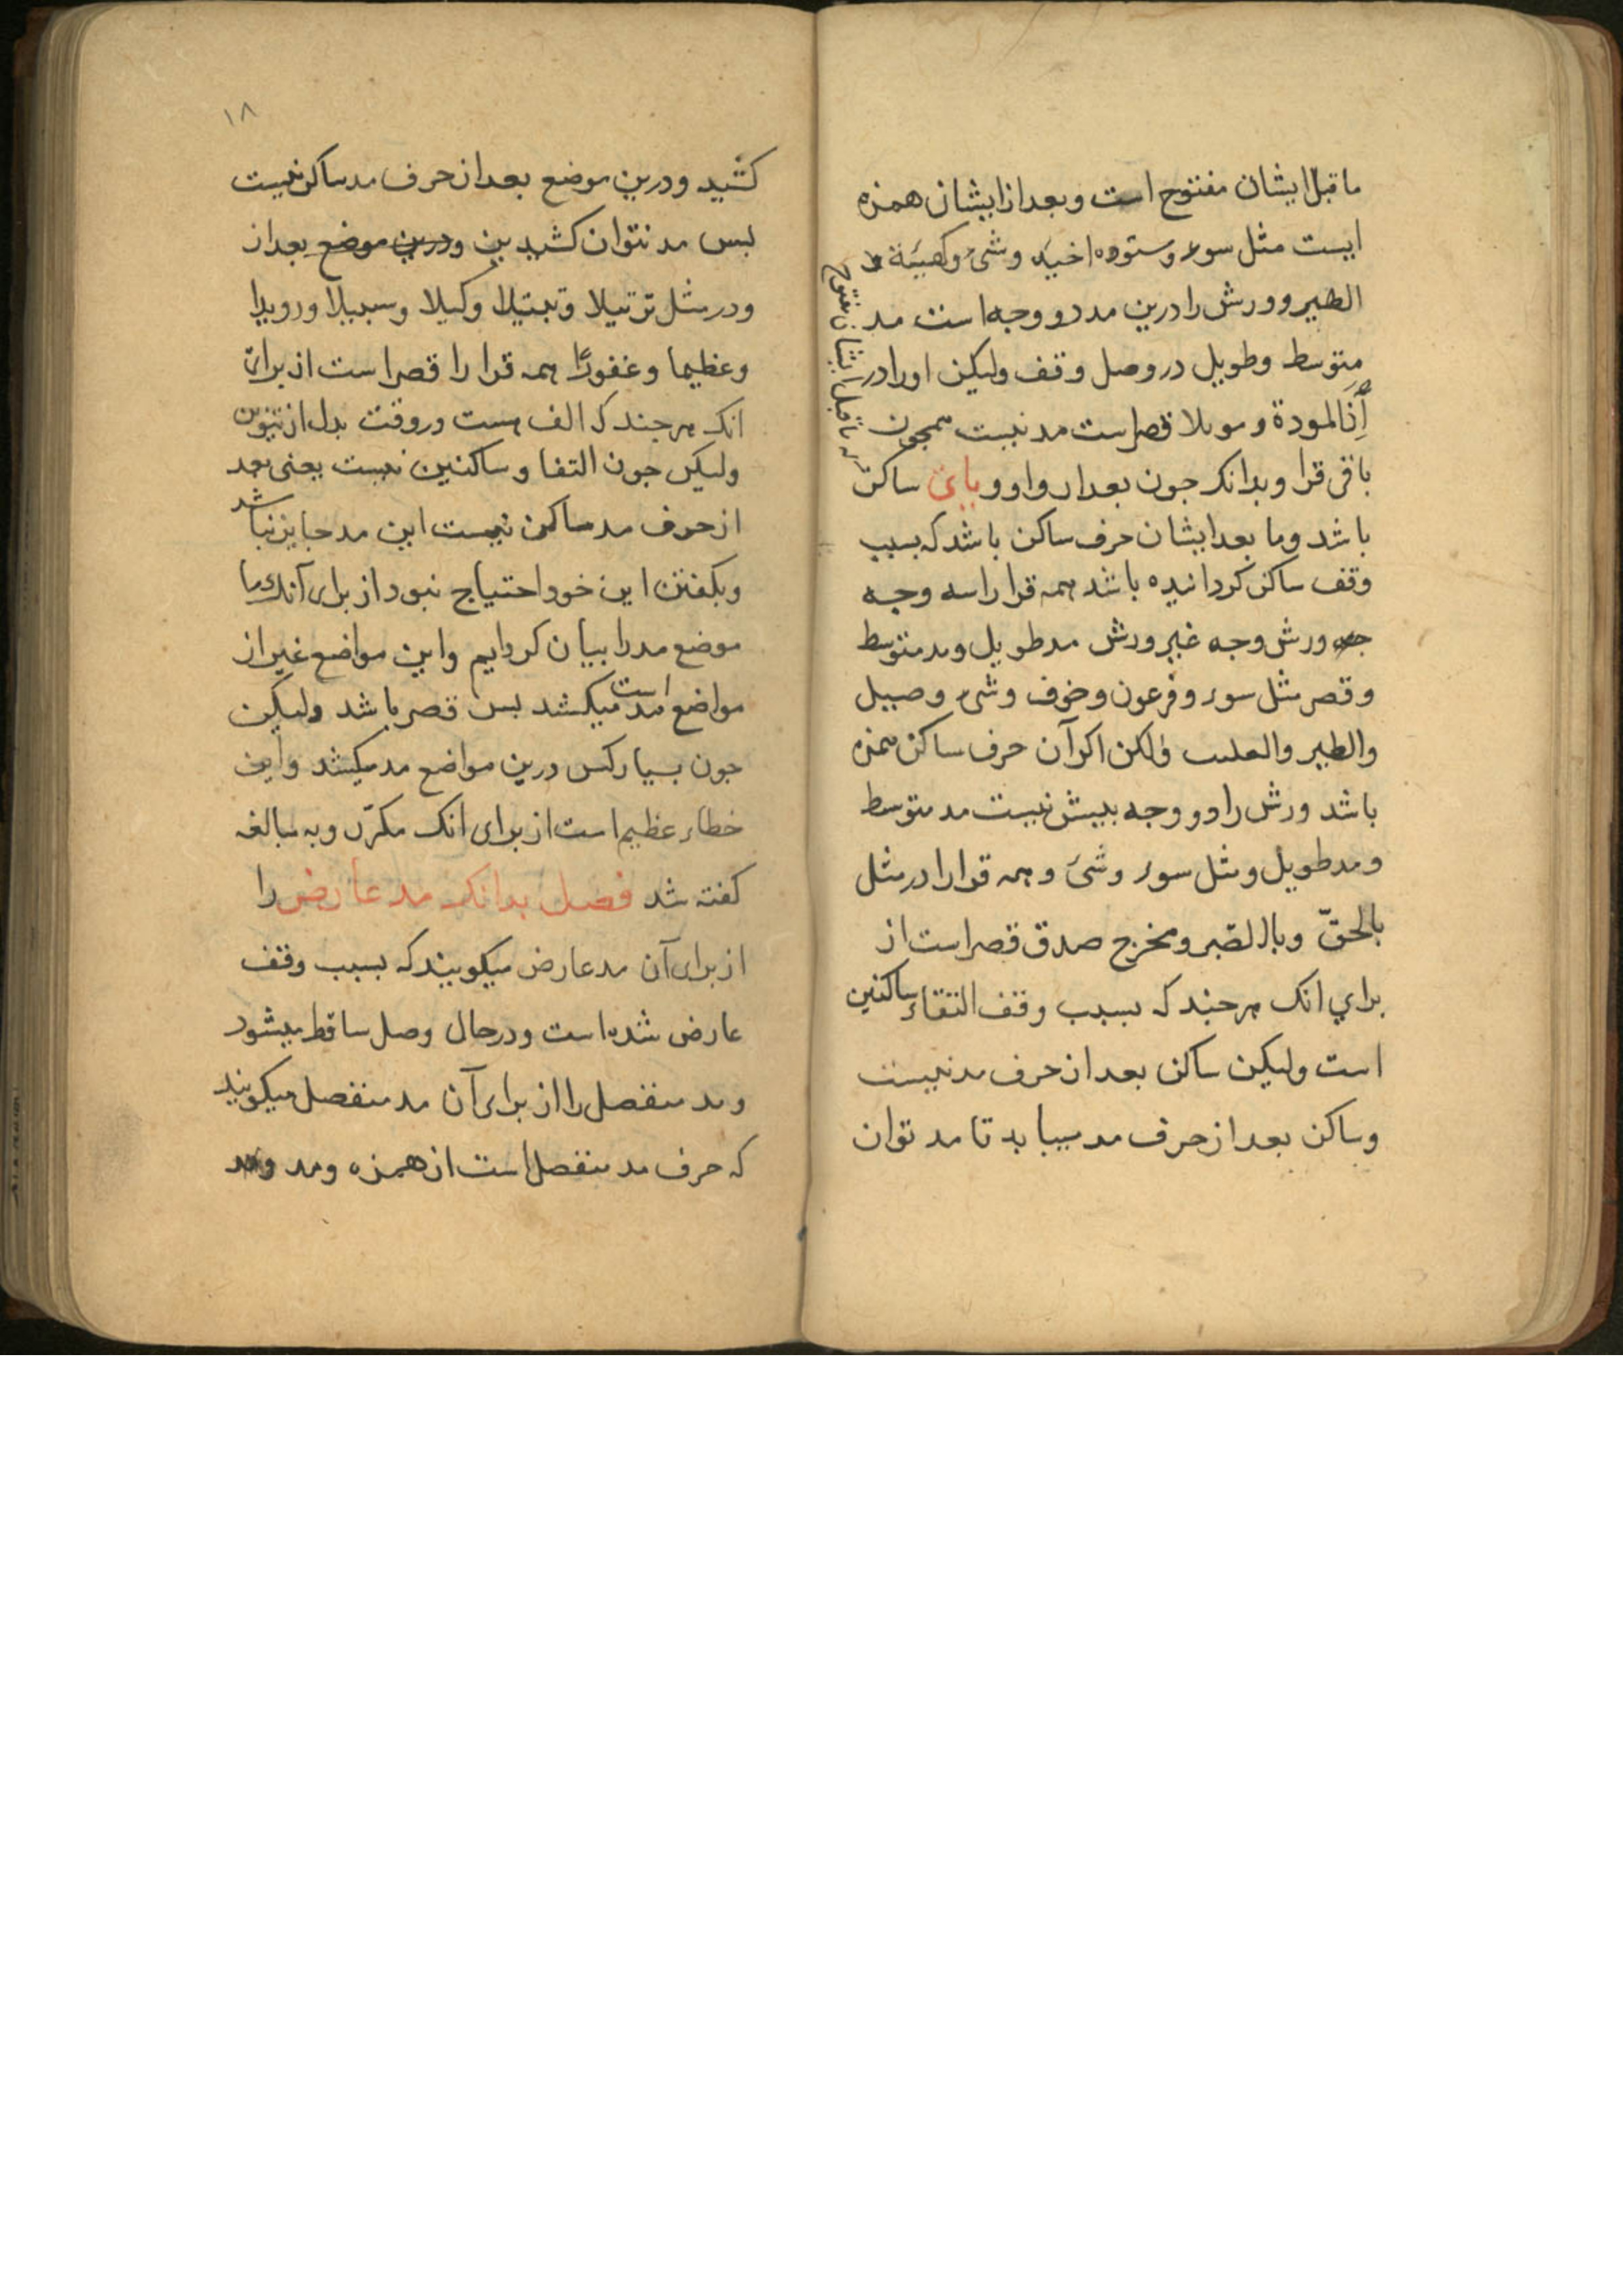 ما قبل ایشان مفتوح است وبعد از ایشان همزه
ایست مثل سوء وستوده اخیه وشیء وکهیئة
الطیر وورش را درین مد دو وجه است مد
متوسط وطویل در وصل وقف ولیکن اورا در
المودة و موئلا قصراست مد نیست همجون
باقی قرا وبدانک جون بعد از واو ویای ساکن
باشد وما بعد ایشان حرف ساکن باشد که بسبب
وقف ساکن کردانیده باشد همه قرا را سه وجه
ورش وجه غیر ورش مد طویل ومد متوسط
وقصر مثل سوء وفرعون وخوف وشیء وصیل
والطیر ولکن اکر آن حرف ساکن همزه
باشد ورش را دو وجه بیش نیست مد متوسط
ومد طویل ومثل سوء وشیء وهمه قرا را در مثل
بالحقّ وبالصّبر ومخرج صدق قصراست از
برای انک هرجند که بسبب وقف التقاء ساکنین
است ولیکن ساکن بعد از حرف مد نیست
وساکن بعد از حرف مد میباید تا مد توان
ما قبل ایشان مفتوح
١٨
کشید ودرین موضع بعد از حرف مد ساکن نیست
بس مد نتوان کشیدین ودرین موضع بعد از
ودر مثل ترتیلا وتبتیلا وکیلا وسبیلا ورویدا
وعظیما وغفورًا همه قرا را قصراست از برای
انک هرجند که الف هست در وقت بدل از تنوین
ولیکن جون التقا وساکنین نیست یعنی بعد
از حرف مد ساکن نیست این مد جایز نباشد
وبکفتن این خود احتیاج نبود از برای آنک ما
موضع مد را بیان کردایم واین مواضع غیر از
مواضع مد است میکشد بس قصر باشد ولیکن
جون بسیار کس درین مواضع مد میکشد واین
خطاء عظیم است از برای انک مکرّر وبه مبالغه
کفته شد فصل بدانک مد عارض را
از برای آن مد عارض میکویند که بسبب وقف
عارض شده است ودر حال وصل ساقط میشود
ومد منفصل را از برای آن مد منفصل میکویند
که حرف مد منفصل است از همزه ومد